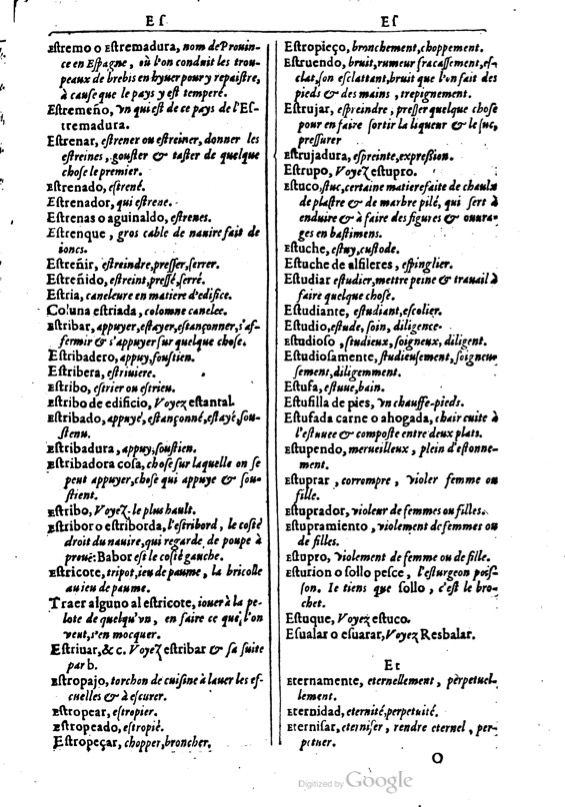 Eſ
Eſ
Eſtremo o Eſtremadura, nom de Prouin-
ce en Eſpagne, où l'on conduit les trou-
peaux de brebis en hyuer pour y repaiſtre,
à cauſe que le pays y eſt temperé.
Eſtremeño, Vn qui eſt de ce pays de l'Eſ-
tremadura.
Eſtrenar, eſtrener ou eſtreiner, donner les
eſtreines, gouſter & taſter de quelque
choſe le premier.
Eſtrenado, eſtrené.
Eſtrenador, qui eſtrene.
Eſtrenas o aguinaldo, eſtrenes.
Eſtrenque, gros cable de nauire fait de
ioncs.
Eſtreñir, eſtreindre, preſſer, ſerrer.
Eſtreñido, eſtreint, preſſé, ſerré.
Eſtria, caneleure en matiere d'edifice.
Coluna eſtriada, colomne canelee.
Eſtribar, appuyer, eſtayer, eſtançonner, s'af-
fermir & s'appuyer ſur quelque choſe.
Eſtribadero, appuy, ſouſtien.
Eſtribera, eſtriuiere.
Eſtribo, eſtrier ou eſtrieu.
Eſtribo de edificio, Voyez eſtantal.
Eſtribado, appuyé, eſtançonné, eſtayé, ſou-
ſtenu.
Eſtribadura, appuy, ſouſtien.
Eſtribadora coſa, choſe ſur laquelle on ſe
peut appuyer, choſe qui appuye & ſou-
ſtient.
Eſtribo, Voyez le plus hault.
Eſtribor o eſtriborda, l'eſtribord, le coſté
droit du nauire, qui regarde de poupe à
prouë: Babor eſt le coſté gauche.
Eſtricote, tripot, ieu de paume, la bricolle
au ieu de paume.
Traer alguno al eſtricote, iouer à la pe-
lote de quelqu'vn, en faire ce que l'on
veut, s'en mocquer.
Eſtriuar, & c. Voyez eſtribar & ſa ſuite
par b.
Eſtropajo, torchon de cuiſine à lauer les eſ-
cuelles & à eſcurer.
Eſtropear, eſtropier.
Eſtropeado, eſtropié.
Eſtropeçar, chopper, broncher,
Eſtropieço, bronchement, choppement.
Eſtruendo, bruit, rumeur fracaſſement, eſ-
clat, ſon eſclattant, bruit que l'on fait des
pieds & des mains, trepignement.
Eſtrujar, eſpreindre, preſſer quelque choſe
pour en faire ſortir la liqueur & le ſuc,
preſſurer
Eſtrujadura, eſpreinte, expreſſion.
Eſtrupo, Voyez eſtupro.
Eſtuco, ſtuc, certaine matiere faite de chaulx
de plaſtre & de marbre pilé, qui ſert à
enduire & à faire des figures & ouura-
ges en baſtimens.
Eſtuche, eſtuy, cuſtode.
Eſtuche de alfileres, eſpinglier.
Eſtudiar eſtudier, mettre peine & trauail à
faire quelque choſe.
Eſtudiante, eſtudiant, eſcolier.
Eſtudio, eſtude, ſoin, diligence.
Eſtudioſo, ſtudieux, ſoigneux, diligent.
Eſtudioſamente, ſtudieuſement, ſoigneu
ſement, diligemment.
Eſtufa, eſtuue, bain.
Eſtufilla de pies, vn chauffe-pieds.
Eſtufada carne o ahogada, chair cuite à
l'eſtuuee & compoſte entre deux plats.
Eſtupendo, merueilleux, plein d'eſtonne-
ment.
Eſtuprar, corrompre, violer femme ou
fille.
Eſtuprador, violeur de femmes ou filles.
Eſtupramiento, violement de femmes ou
de filles.
Eſtupro, violement de femme ou de fille.
Eſturion o ſollo peſce, l'eſturgeon poiſ-
ſon. Ie tiens que ſollo, c'eſt le bro-
chet.
Eſtuque, Voyez eſtuco.
Eſualar o eſuarar, Voyez Resbalar.
Et
Eternamente, eternellement, pèrpetuel-
lement.
Eternidad, eternité, perpetuité.
Eterniſar, eterniſer, rendre eternel, per-
petuer.
O
Digitized by Google